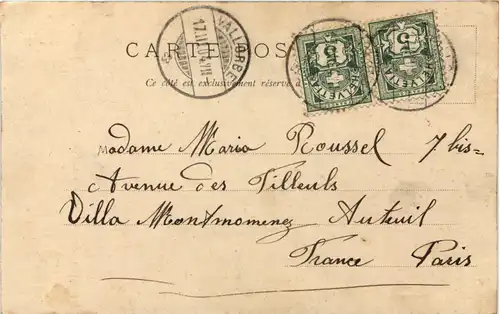 CARTE POS
Ce côté est exclusivement réservé à
VALLORBE
17.II.04.VII
5 HELVETIA
5 HELVETIA
Madame Maria Roussel 7 bis=
Avenue des Tilleuls
Villa Montmorency Auteuil
France Paris